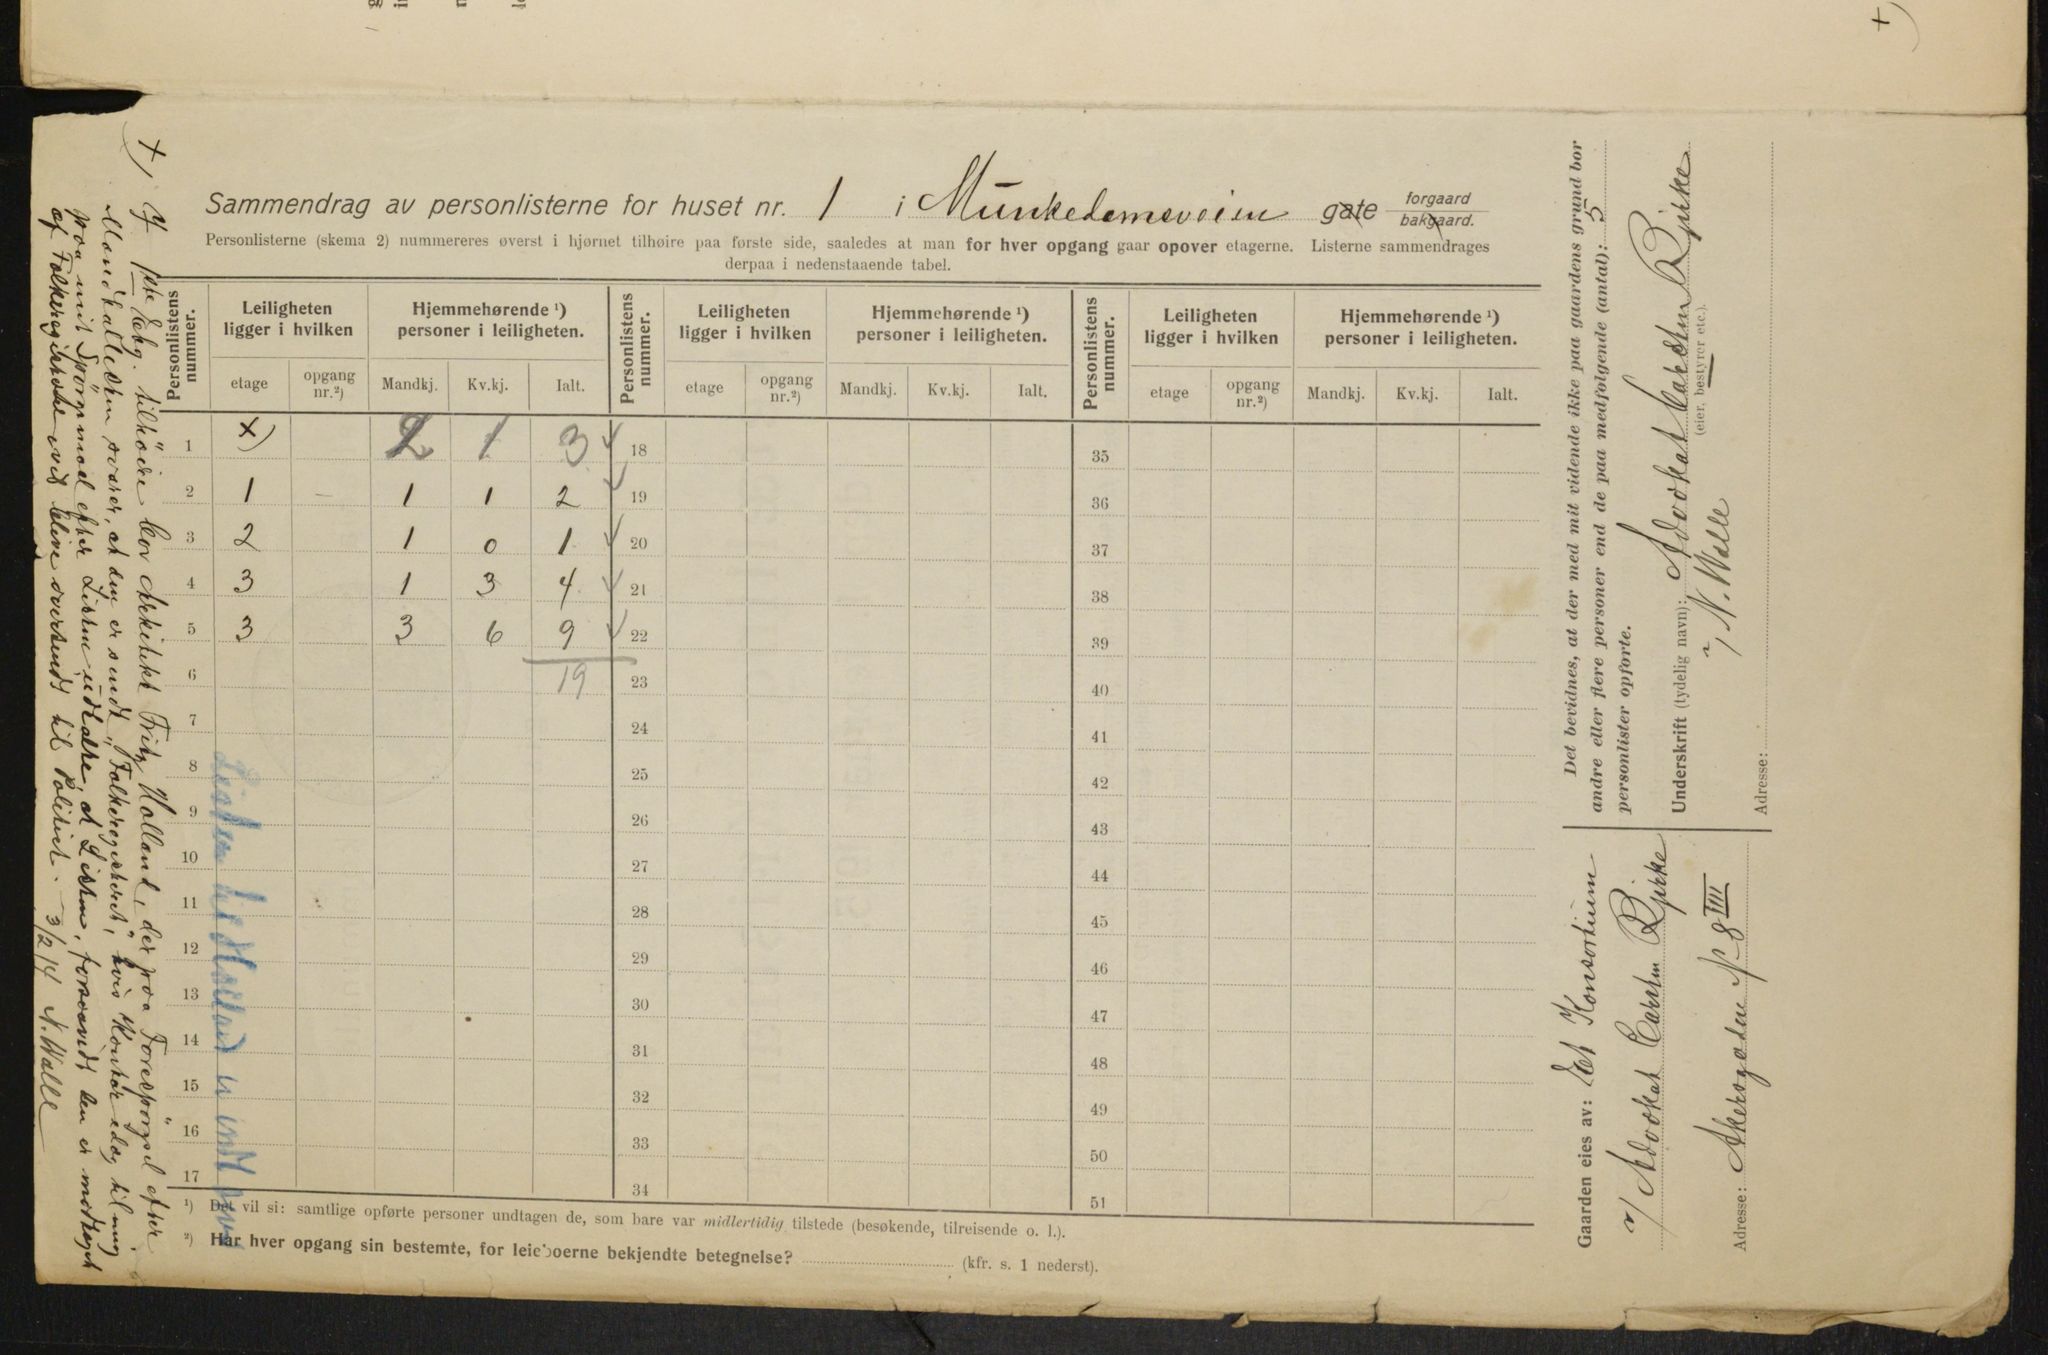 Sammendrag av personlisterne for huset nr. 1 i Munkedamsveien gate forgaard bakgaard.
Personlisterne (skema 2) nummereres øverst i hjørnet tilhøire paa første side, saaledes at man for hver opgang gaar opover etagerne. Listerne sammendrages
derpaa i nedenstaaende tabel.
Personlistens nummer. Leiligheten ligger i hvilken Hjemmehørende ¹) personer i leiligheten. Personlistens nummer. Leiligheten ligger i hvilken Hjemmehørende ¹) personer i leiligheten. Personlistens nummer. Leiligheten ligger i hvilken Hjemmehørende ¹) personer i leiligheten.
etage opgang nr.²) Mandkj. Kv.kj. Ialt. etage opgang nr.²) Mandkj. Kv.kj. Ialt. etage opgang nr.²) Mandkj. Kv.kj. Ialt.
1 x) 2 1 3 18 35
2 1 – 1 1 2 19 36
3 2 1 0 1 20 37
4 3 1 3 4 21 38
5 3 3 6 9 22 39
6 19 23 40
7 24 41
8 25 42
9 26 43
10 27 44
11 28 45
12 29 46
13 30 47
14 31 48
15 32 49
16 33 50
17 34 51
¹) Det vil si: samtlige opførte personer undtagen de, som bare var midlertidig tilstede (besøkende, tilreisende o. l.).
²) Har hver opgang sin bestemte, for leieboerne bekjendte betegnelse? (kfr. s. 1 nederst).
x) I 1ste Etg. tilhöire bor Arkitekt Fritz Holland, der paa Forespörgsel efter
Mandtallisten svarer, at den er sendt "Folkeregisteret", hvis Kontor idag til mig
paa mit Spörgsmaal efter Listen udtalte, at Listen, forsaavidt den er modtaget
af Folkeregisteret vil blive oversendt til Politiet. 3/2 14 N. Walle
Listen til Holland
Det bevidnes, at der med mit vidende ikke paa gaardens grund bor
andre eller flere personer end de paa medfølgende (antal): 5
personlister opførte.
Underskrift (tydelig navn): Advokat Carsten Bjirke
(eier, bestyrer etc.).
N. Walle
Adresse:
Gaarden eies av: Et Konsortium
v/ Advokat Carsten Bjirke
Adresse: Akersgaden № 8 III
+)